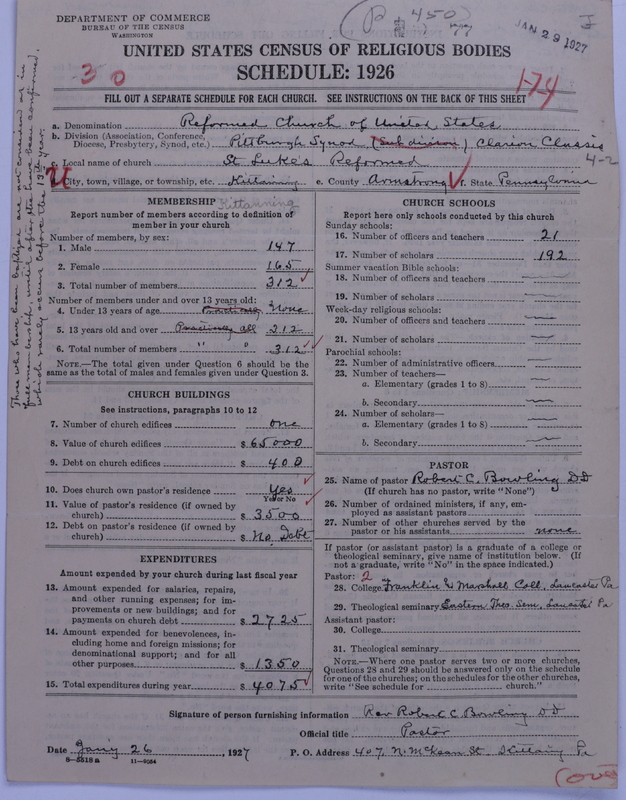 DEPARTMENT OF COMMERCE
BUREAU OF THE CENSUS
WASHINGTON
P 450
JAN 29 1927
I
UNITED STATES CENSUS OF RELIGIOUS BODIES
SCHEDULE: 1926
30
174
FILL OUT A SEPARATE SCHEDULE FOR EACH CHURCH. SEE INSTRUCTIONS ON THE BACK OF THIS SHEET
a. Denomination Reformed Church of United States
b. Division (Association, Conference, Diocese, Presbytery, Synod, etc.) Pittsburgh Synod (Sub division) Clarion Classis
4-2
c. Local name of church St Luke's Reformed
d. City, town, village, or township, etc. Kittanning e. County Armstrong f. State Pennsylvania
Kittanning
MEMBERSHIP
Report number of members according to definition of member in your church
Number of members, by sex:
1. Male 147
2. Female 165
3. Total number of members 312
Number of members under and over 13 years old:
4. Under 13 years of age Practically None
5. 13 years old and over Practically all 312
6. Total number of members " " 312
NOTE.—The total given under Question 6 should be the same as the total of males and females given under Question 3.
CHURCH BUILDINGS
See instructions, paragraphs 10 to 12
7. Number of church edifices one
8. Value of church edifices $65000
9. Debt on church edifices $400
10. Does church own pastor's residence Yes
Yes or No
11. Value of pastor's residence (if owned by church) $3500
12. Debt on pastor's residence (if owned by church) $No Debt
EXPENDITURES
Amount expended by your church during last fiscal year
13. Amount expended for salaries, repairs, and other running expenses; for improvements or new buildings; and for payments on church debt $2725
14. Amount expended for benevolences, including home and foreign missions; for denominational support; and for all other purposes $1350
15. Total expenditures during year $4075
CHURCH SCHOOLS
Report here only schools conducted by this church
Sunday schools:
16. Number of officers and teachers 21
17. Number of scholars 192
Summer vacation Bible schools:
18. Number of officers and teachers
19. Number of scholars
Week-day religious schools:
20. Number of officers and teachers
21. Number of scholars
Parochial schools:
22. Number of administrative officers
23. Number of teachers—
a. Elementary (grades 1 to 8)
b. Secondary
24. Number of scholars—
a. Elementary (grades 1 to 8)
b. Secondary
PASTOR
25. Name of pastor Robert C. Bowling DD
(If church has no pastor, write "None")
26. Number of ordained ministers, if any, employed as assistant pastors
27. Number of other churches served by the pastor or his assistants none
If pastor (or assistant pastor) is a graduate of a college or theological seminary, give name of institution below. (If not a graduate, write "No" in the space indicated.)
Pastor: 2
28. College Franklin & Marshall Coll, Lancaster Pa
29. Theological seminary Eastern Theo. Sem, Lancaster Pa
Assistant pastor:
30. College
31. Theological seminary
NOTE.—Where one pastor serves two or more churches, Questions 28 and 29 should be answered only on the schedule for one of the churches; on the schedules for the other churches, write "See schedule for church."
Signature of person furnishing information Rev Robert C Bowling DD
Official title Pastor
Date Jan'y 26, 1927 P. O. Address 407 N. McKean St. Kittaning Pa
8—5518 a 11—9084
(over
Those who have been baptized are not considered as in full membership, until after they have been confirmed, which rarely occurs before the 13th year.